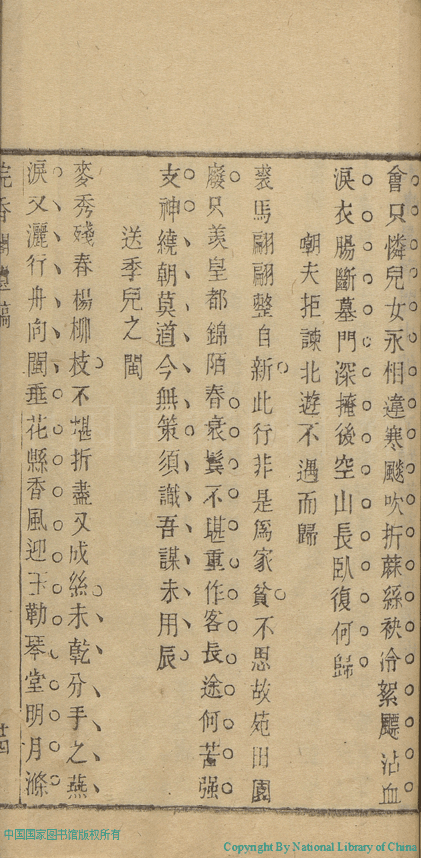 會只憐兒女永相違寒飈吹折蔴絲袂冷絮飄沾血
淚衣腸斷墓門深掩後空山長臥復何歸
嘲夫拒諫北遊不遇而歸
裘馬翩翩整自新此行非是爲家貧不思故苑田園
廢只羡皇都錦陌春衰鬢不堪重作客長途何苦强
支神繞朝莫道今無策須識吾謀未用辰
送季兒之閩
麥秀殘春楊柳枝不堪折盡又成絲未乾分手之燕
淚又灑行舟向閩垂花縣香風迎玉勒琴堂明月滌
香閣
稿
廿四
中国国家图书馆版权所有
Copyright By National Library of China